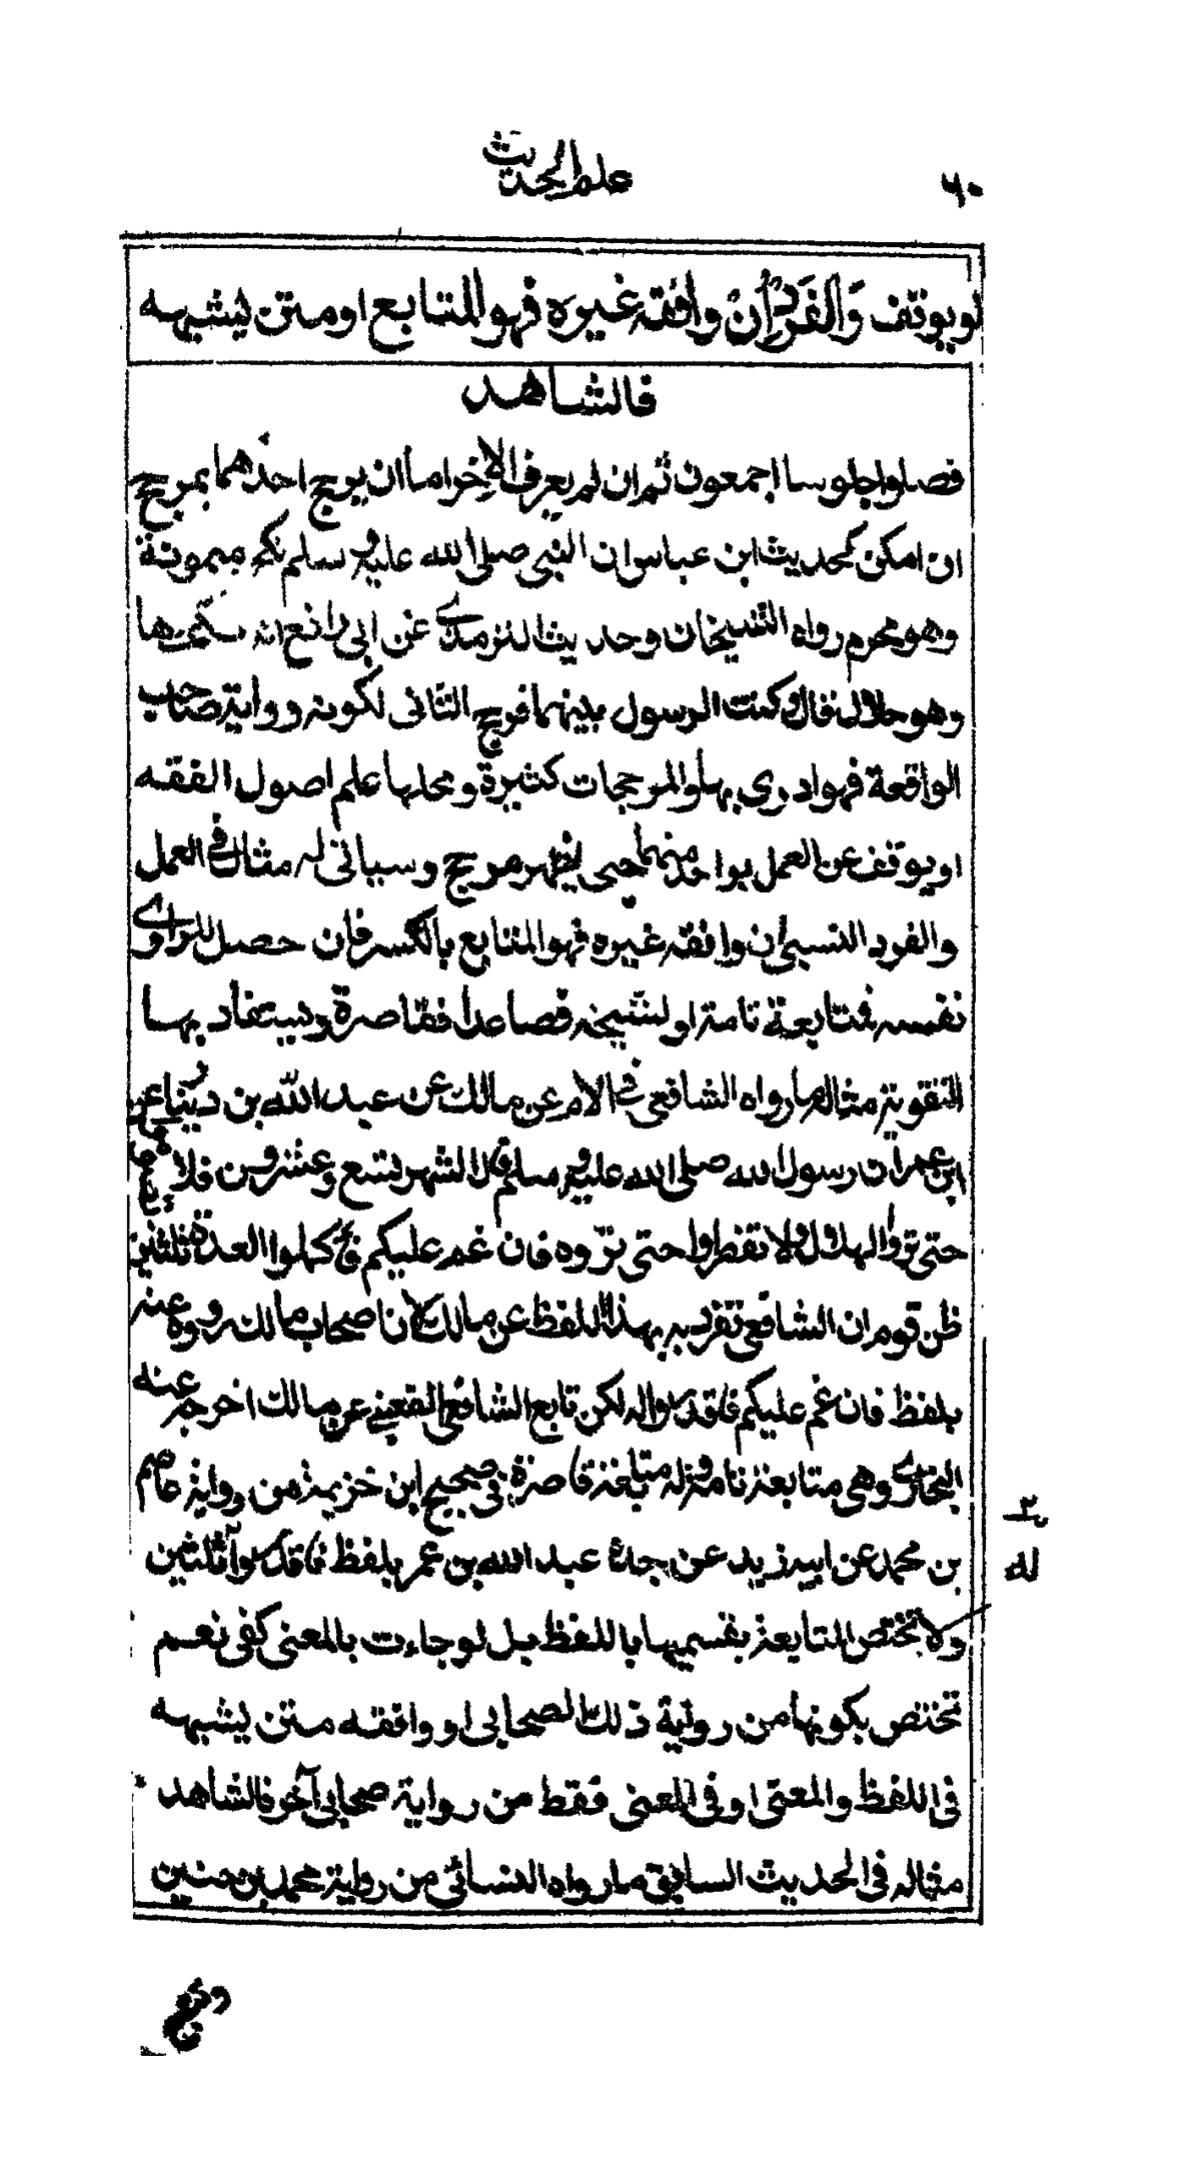 ٦٠
علم الحديث
او يوقف وَالفَرْدُ إنْ وافقه غيره فهو المتابع او متن يشبهه
فالشاهد
فصلوا جلوسا اجمعون ثم ان لم يعرف الاخر اما ان يرجح احدهما بمرجح
ان امكن كحديث ابن عباس ان النبي صلى الله عليه وسلم نكح ميمونة
وهو محرم رواه الشيخان وحديث الترمذي عن ابى رافع انه نكحها
وهو حلال قال وكنت الرسول بينهما فرجح الثانى لكونه رواية صاحب
الواقعة فهو ادرى بها والمرجحات كثيرة ومحلها علم اصول الفقه
او يوقف عن العمل بواحد منهما حتى يظهر مرجح وسياتى له مثال فى العمل
والفرد النسبى ان وافقه غيره فهو المتابع بالكسر فان حصل للراوى
نفسه فمتابعة تامة او لشيخه فصاعدا فقاصرة ويستفاد بها
التقوية مثاله ما رواه الشافعى فى الام عن مالك عن عبد الله بن دينار عن
ابن عمر ان رسول الله صلى الله عليه وسلم قال الشهر تسع وعشرون فلا تصوموا
حتى تروا الهلال ولا تفطروا حتى تروه فان غم عليكم فاكملوا العدة ثلثين
ظن قوم ان الشافعى تفرد به بهذا اللفظ عن مالك لان اصحاب مالك رووه عنه
بلفظ فان غم عليكم فاقدروا له لكن تابع الشافعى القعنبى عن مالك اخرجه عنه
البخارى وهى متابعة تامة وله متابعة قاصرة فى صحيح ابن خزيمة من رواية عاصم
بن محمد عن ابيه زيد عن جده عبد الله بن عمر بلفظ فاقدروا ثلثين
ولا تختص المتابعة بقسميها باللفظ بل لو جاءت بالمعنى كفى نعم
تختص بكونها من رواية ذلك الصحابى او وافقه متن يشبهه
فى اللفظ والمعنى او فى المعنى فقط من رواية صحابى آخر فالشاهد
مثاله فى الحديث السابق ما رواه النسائى من رواية محمد بن حنين
له